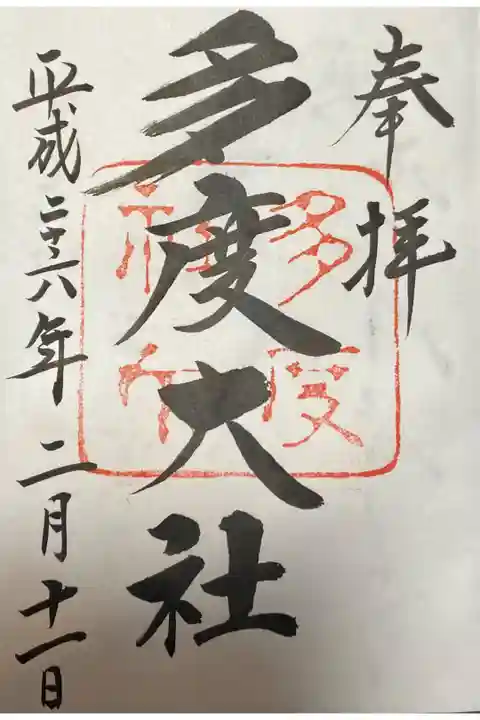 奉拝
多度
多度大社
平成二十六年二月十一日